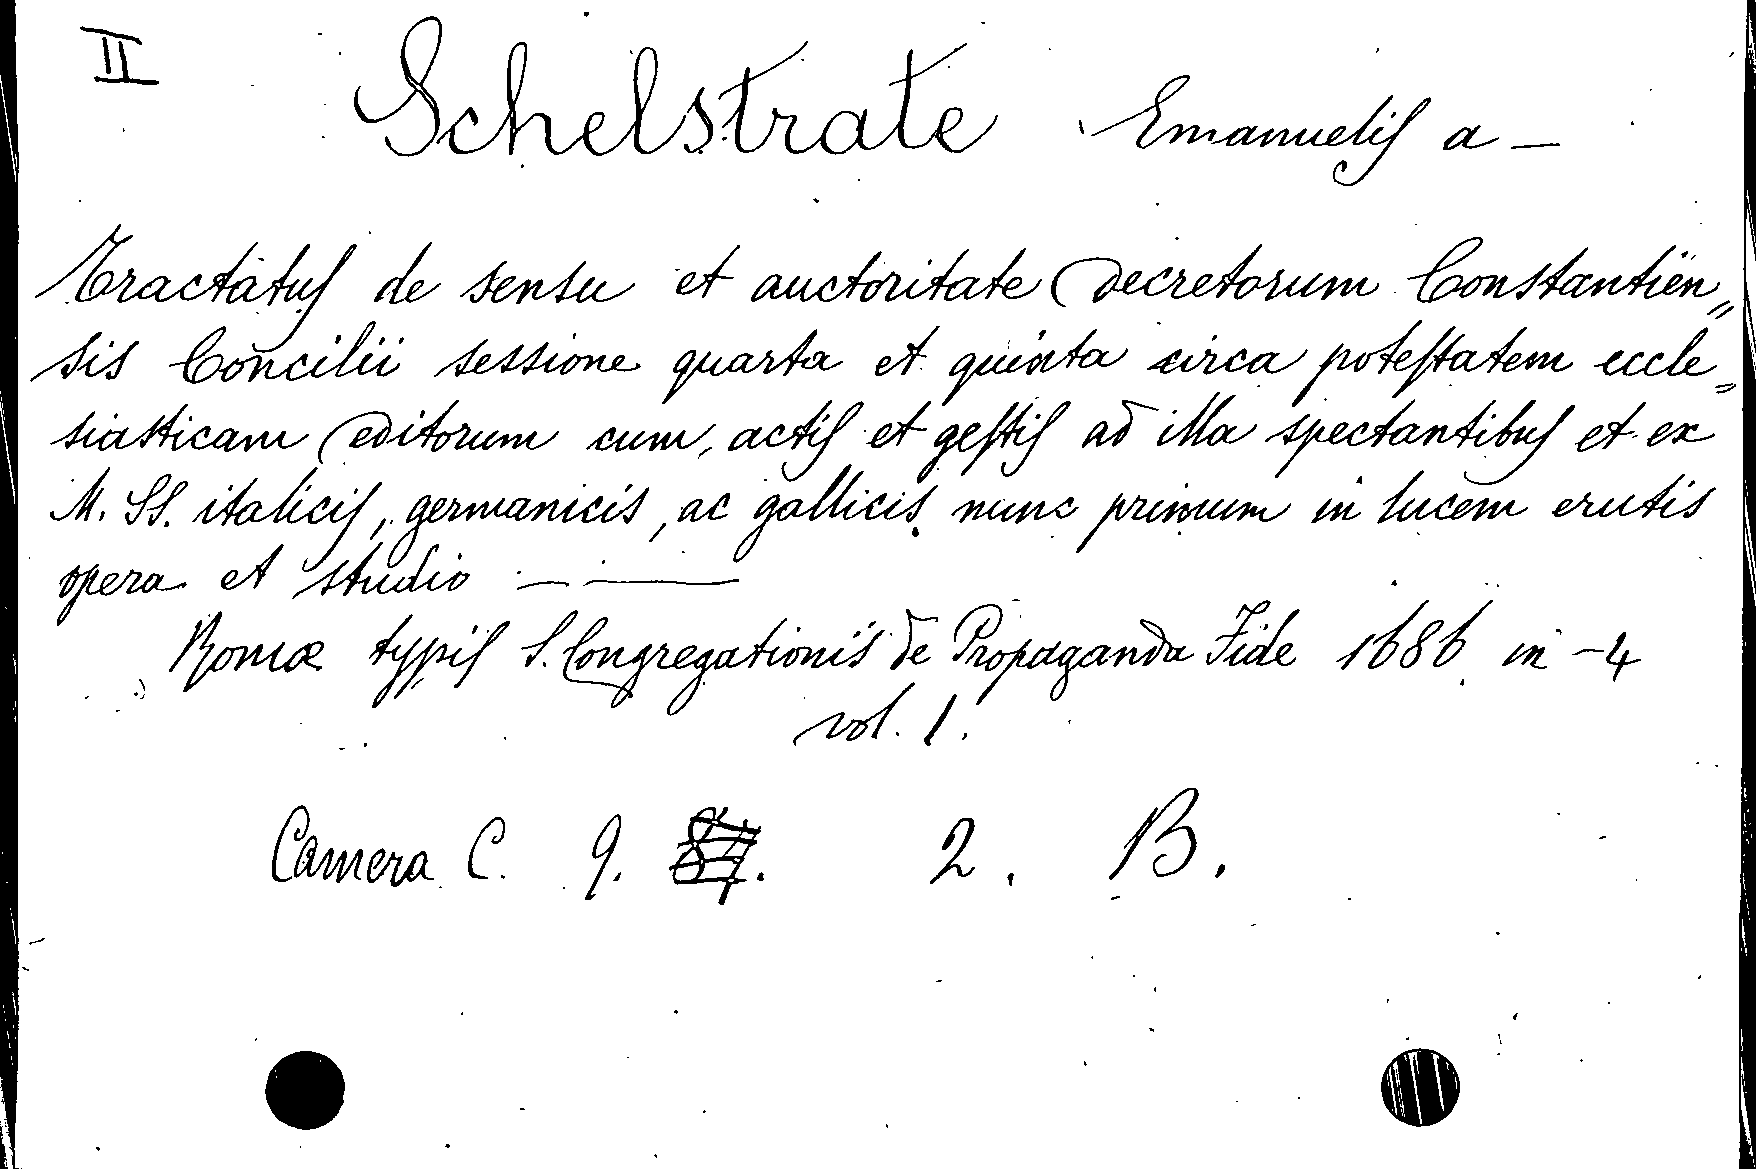 II Schelstrate Emanuelis a –
Tractatus de sensu et auctoritate decretorum Constantien„
sis Concilii sessione quarta et quinta circa potestatem eccle„
siasticam editorum cum, actis et gestis ad illa spectantibus et ex
M. SS. italicis, germanicis, ac gallicis nunc primum in lucem erutis
opera et studio — ——
Romæ typis S. Congregationis de Propaganda Fide 1686 in -4
vol. 1.
Camera C. 9. 2. B.